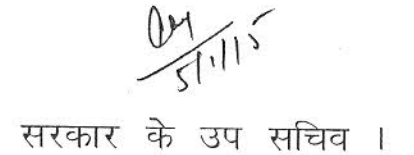 5/1/15
सरकार के उप सचिव ।